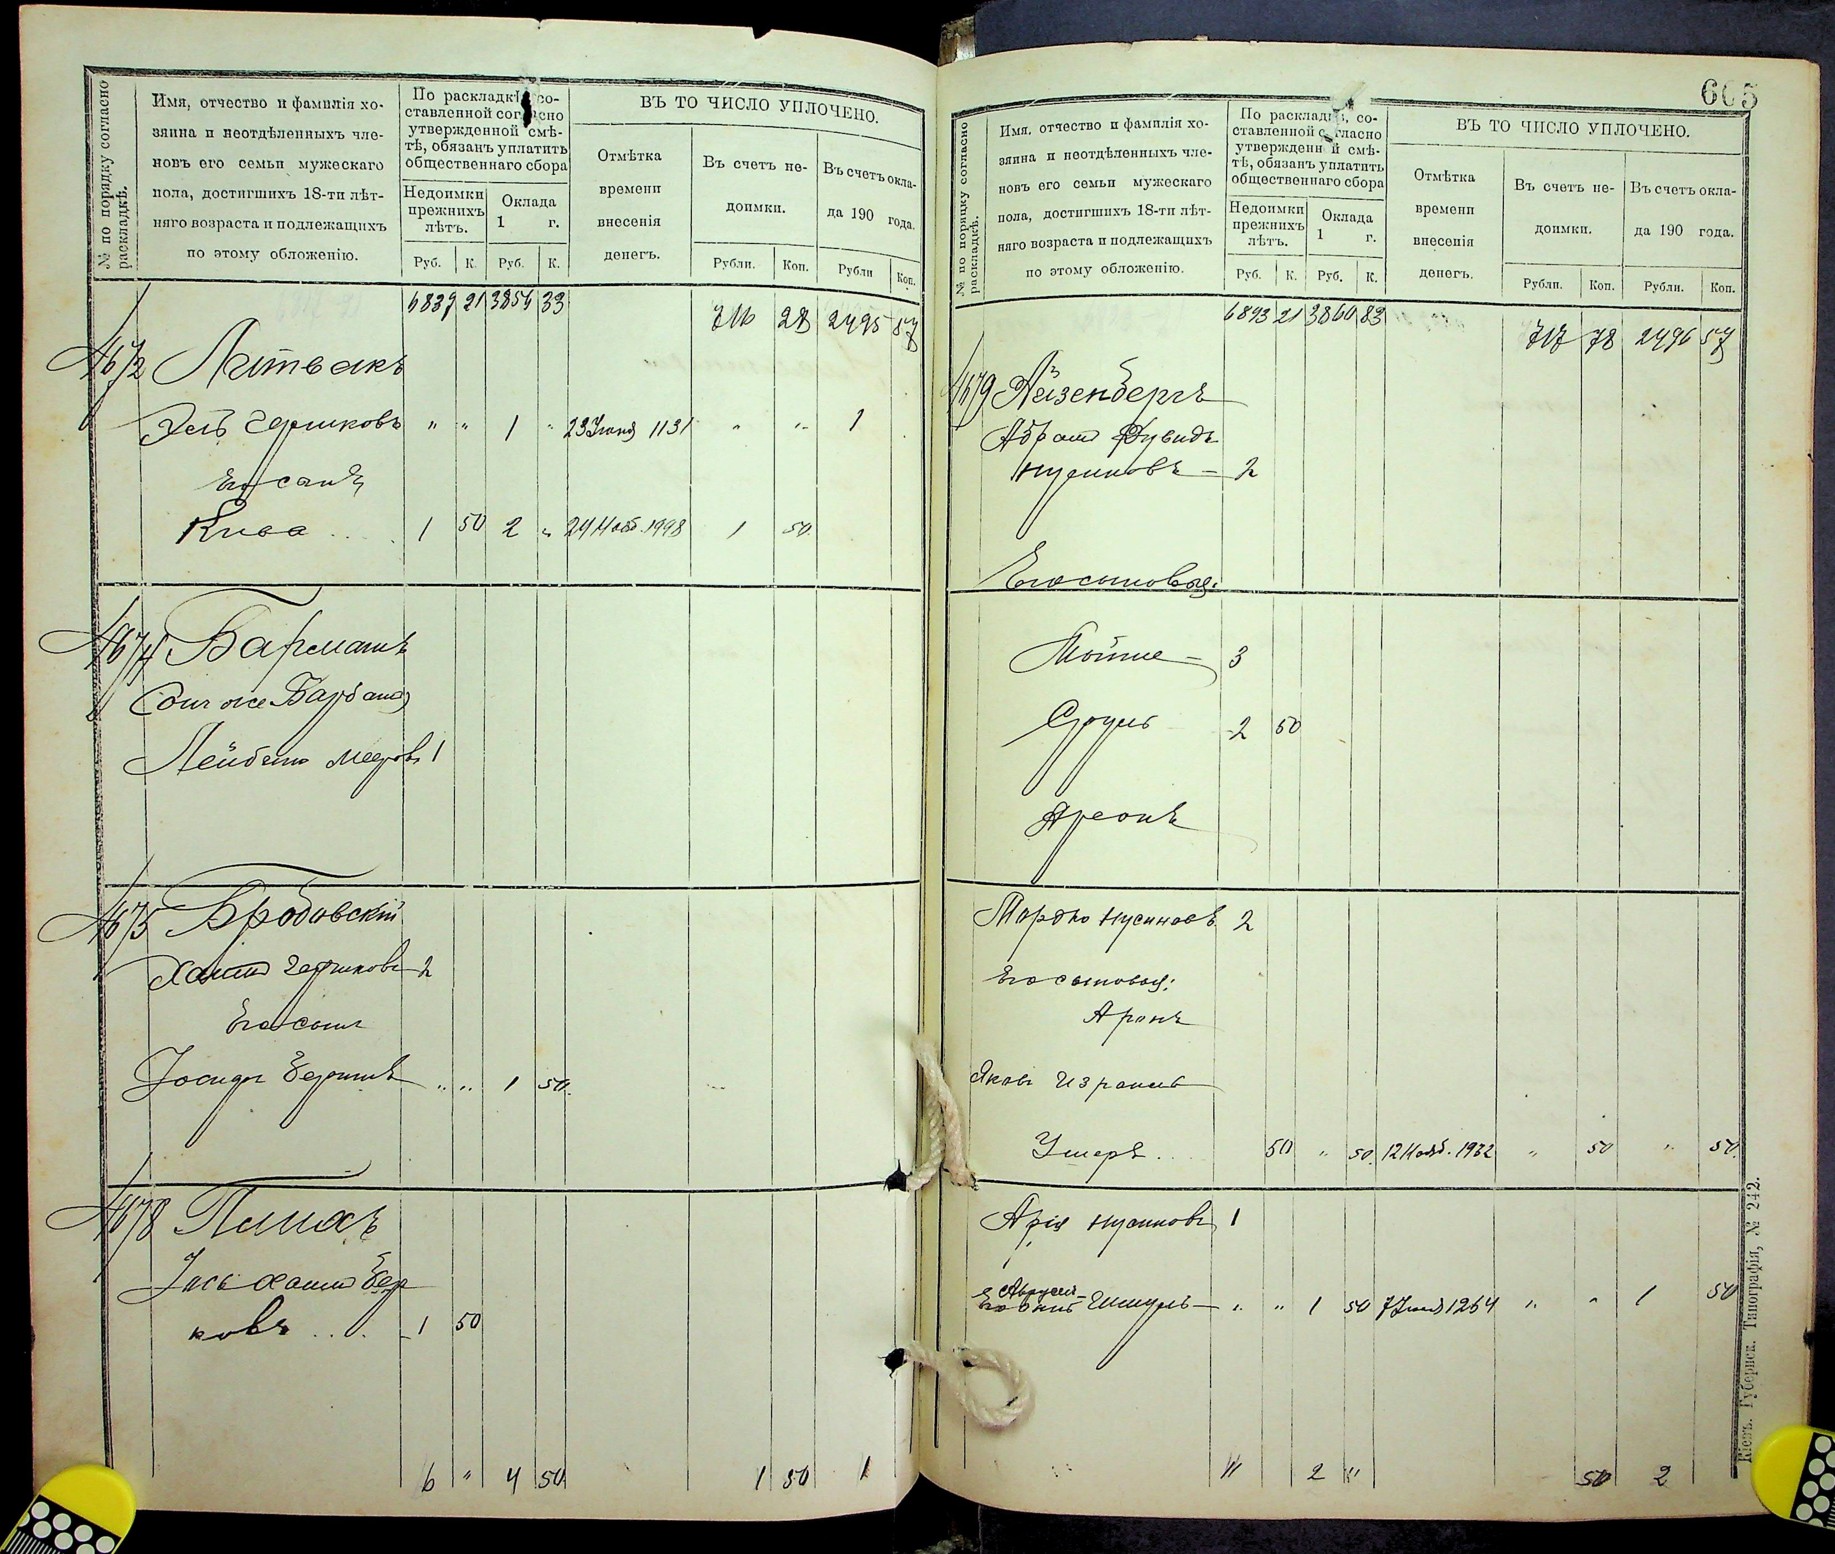 № по порядку согласно раскладкѣ.
Имя, отчество и фамилія хо-
зяина и неотдѣленныхъ чле-
новъ его семьи мужескаго
пола, достигшихъ 18-ти лѣт-
няго возраста и подлежащихъ
по этому обложенію.
По раскладкѣ, со-
ставленной согласно
утвержденной смѣ-
тѣ, обязанъ уплатить
общественнаго сбора
Недоимки
прежнихъ
лѣтъ.
Оклада
1 г.
Руб. К. Руб. К.
ВЪ ТО ЧИСЛО УПЛОЧЕНО.
Отмѣтка
времени
внесенія
денегъ.
Въ счетъ не-
доимки.
Въ счетъ окла-
да 190 года.
Рубли. Коп. Рубли Коп.
6837 21 3854 33 716 28 2495 57
4672 Литвакъ
Эль Гершковъ " " 1 " 23 Іюня 1131 " " 1
Его сынъ
Кива 1 50 2 " 24 Нояб. 1998 1 50
4674 Барманъ
Онъ же Барбанъ
Лейбъ Мееровъ 1
4675 Бродовскій
Хаимъ Гершковъ 2
Его сынъ
Іосифъ Бершъ " " 1 50.
4678 Пинхъ
Іось Хаимъ Бер
ковъ 1 50
6 " 4 50 1 50 1
605
№ по порядку согласно раскладкѣ.
Имя, отчество и фамилія хо-
зяина и неотдѣленныхъ чле-
новъ его семьи мужескаго
пола, достигшихъ 18-ти лѣт-
няго возраста и подлежащихъ
по этому обложенію.
По раскладкѣ, со-
ставленной согласно
утвержденной смѣ-
тѣ, обязанъ уплатить
общественнаго сбора
Недоимки
прежнихъ
лѣтъ.
Оклада
1 г.
Руб. К. Руб. К.
ВЪ ТО ЧИСЛО УПЛОЧЕНО.
Отмѣтка
времени
внесенія
денегъ.
Въ счетъ не-
доимки.
Въ счетъ окла-
да 190 года.
Рубли. Коп. Рубли. Коп.
6893 21 3860 83 717 78 2496 57
4679 Айзенбергъ
Абрамъ Дувидъ
Нусиновъ 2
Его сыновья:
Мойше 3
Сруль 2 50
Ареонъ
Мордко Нусиновъ 2
Его сыновья:
Аронъ
Яковъ Израиль
Ушеръ 50 " 50. 12 Нояб. 1932 " 50 " 50.
Арія Нусиновъ 1
Шмуль " " 1 50 7 Іюня 1264 " " 1 50
11 2 " 50 2
Кіевъ. Губернск. Типографія, № 242.